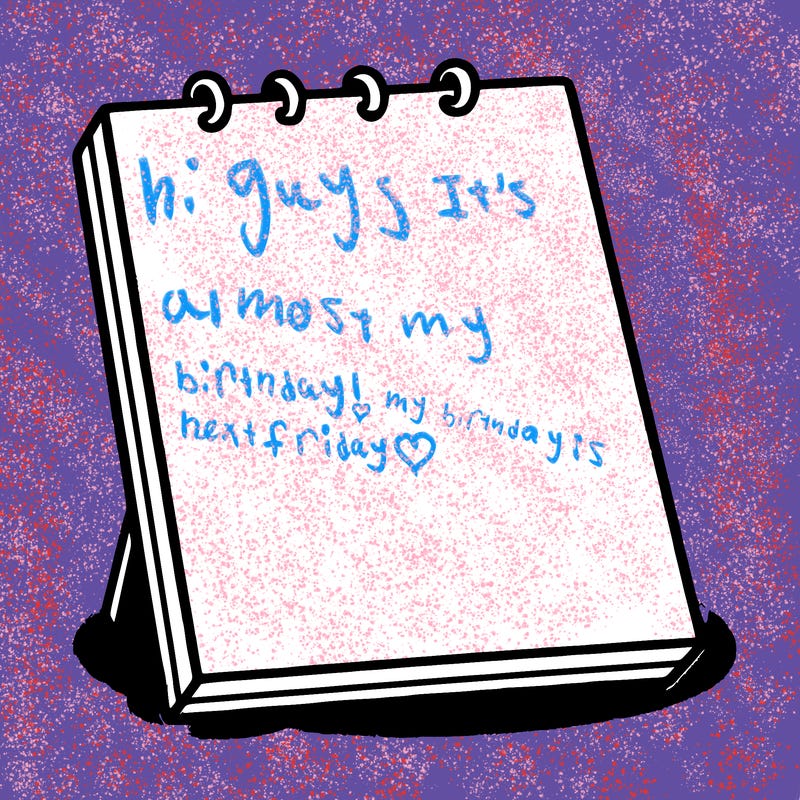 hi guys It's
almost my
birthday!♡ my birthday is
next friday♡